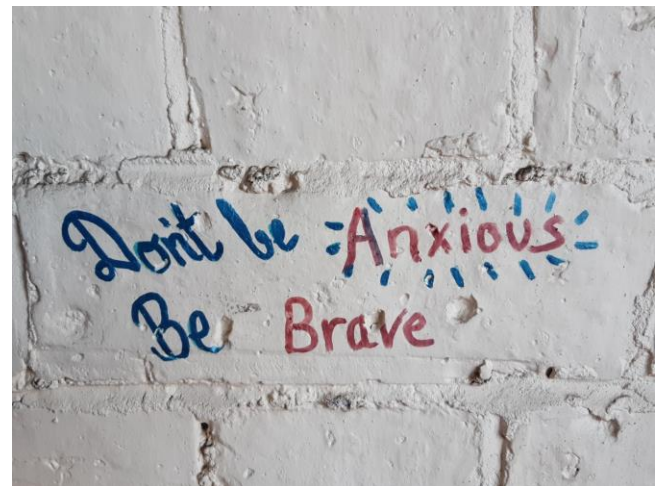 Don't be Anxious
Be Brave